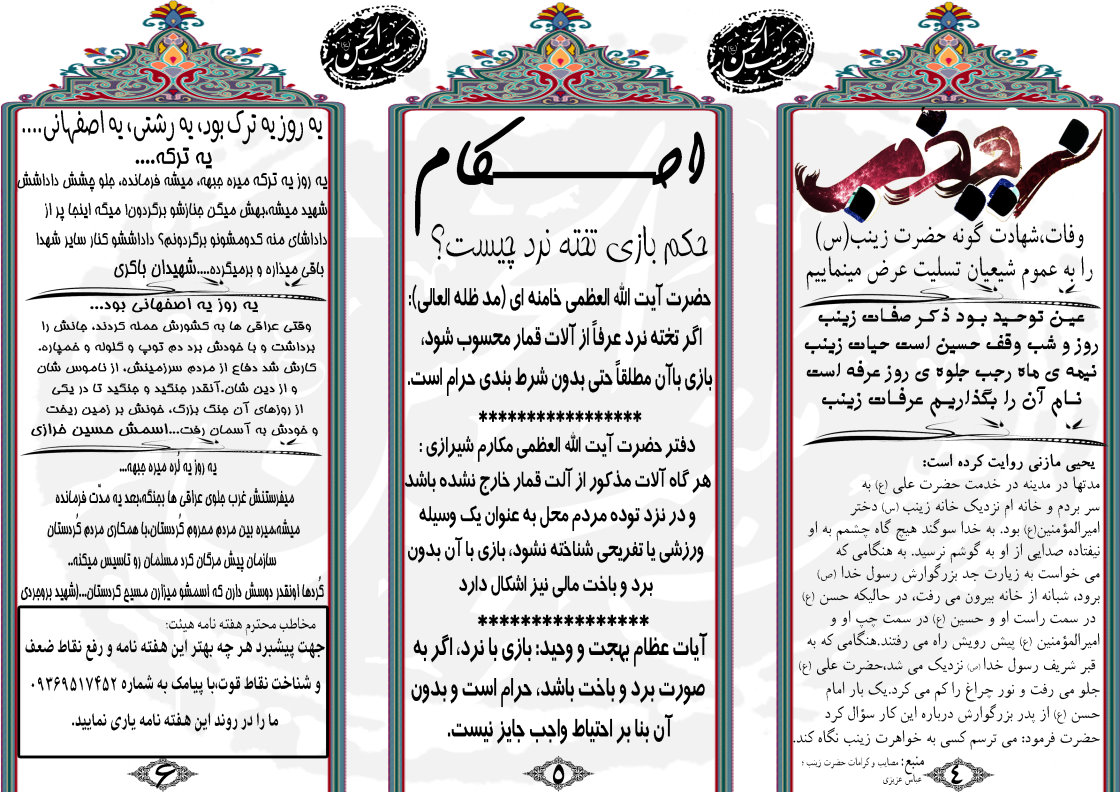 زینب
وفات،شهادت گونه حضرت زینب(س)
را به عموم شیعیان تسلیت عرض مینماییم
عین توحید بود ذکر صفات زینب
روز و شب وقف حسین است حیات زینب
نیمه ی ماه رجب جلوه ی روز عرفه است
نام آن را بگذاریم عرفات زینب
یحیی مازنی روایت کرده است:
مدتها در مدینه در خدمت حضرت علی (ع) به
سر بردم و خانه ام نزدیک خانه زینب (س) دختر
امیرالمؤمنین(ع) بود. به خدا سوگند هیچ گاه چشمم به او
نیفتاده صدایی از او به گوشم نرسید. به هنگامی که
می خواست به زیارت جد بزرگوارش رسول خدا (ص)
برود، شبانه از خانه بیرون می رفت، در حالیکه حسن (ع)
در سمت راست او و حسین (ع) در سمت چپ او و
امیرالمؤمنین (ع) پیش رویش راه می رفتند.هنگامی که به
قبر شریف رسول خدا(ص) نزدیک می شد،حضرت علی (ع)
جلو می رفت و نور چراغ را کم می کرد.یک بار امام
حسن (ع) از پدر بزرگوارش درباره این کار سؤال کرد
حضرت فرمود: می ترسم کسی به خواهرت زینب نگاه کند.
منبع: مصایب و کرامات حضرت زینب ؛
عباس عزیزی
۴
احکام
حکم بازی تخته نرد چیست؟
حضرت آیت الله العظمی خامنه ای (مد ظله العالی):
اگر تخته نرد عرفاً از آلات قمار محسوب شود،
بازی باآن مطلقاً حتی بدون شرط بندی حرام است.
*****************
دفتر حضرت آیت الله العظمی مکارم شیرازی :
هر گاه آلات مذکور از آلت قمار خارج نشده باشد
و در نزد توده مردم محل به عنوان یک وسیله
ورزشی یا تفریحی شناخته نشود، بازی با آن بدون
برد و باخت مالی نیز اشکال دارد
*****************
آیات عظام بهجت و وحید: بازی با نرد، اگر به
صورت برد و باخت باشد، حرام است و بدون
آن بنا بر احتیاط واجب جایز نیست.
۵
یه روز یه ترک بود، یه رشتی، یه اصفهانی....
یه ترکه....
یه روز یه ترکه میره جبهه، میشه فرمانده، جلو چشش داداشش
شهید میشه،بهش میگن جنازشو برگردون! میگه اینجا پر از
داداشای منه کدومشونو برگردونم؟ داداششو کنار سایر شهدا
باقی میذاره و برمیگرده....شهیدان باکری
یه روز یه اصفهانی بود...
وقتی عراقی ها به کشورش حمله کردند، جانش را
برداشت و با خودش برد دم توپ و گلوله و خمپاره.
کارش شد دفاع از مردم سرزمینش، از ناموس شان
و از دین شان.آنقدر جنگید و جنگید تا در یکی
از روزهای آن جنگ بزرگ، خونش بر زمین ریخت
و خودش به آسمان رفت...اسمش حسین خرازی
یه روز یه لُره میره جبهه...
میفرستنش غرب جلوی عراقی ها بجنگه،بعد یه مدّت فرمانده
میشه،میره بین مردم محروم کُردستان،با همکاری مردم کُردستان
سازمان پیش مرگان کرد مسلمان رو تاسیس میکنه..
کُردها اونقدر دوسش دارن که اسمشو میزارن مسیح کردستان...(شهید بروجردی
مخاطب محترم هفته نامه هیئت:
جهت پیشبرد هر چه بهتر این هفته نامه و رفع نقاط ضعف
و شناخت نقاط قوت،با پیامک به شماره ۰۹۳۶۹۵۱۷۴۵۲
ما را در روند این هفته نامه یاری نمایید.
۶